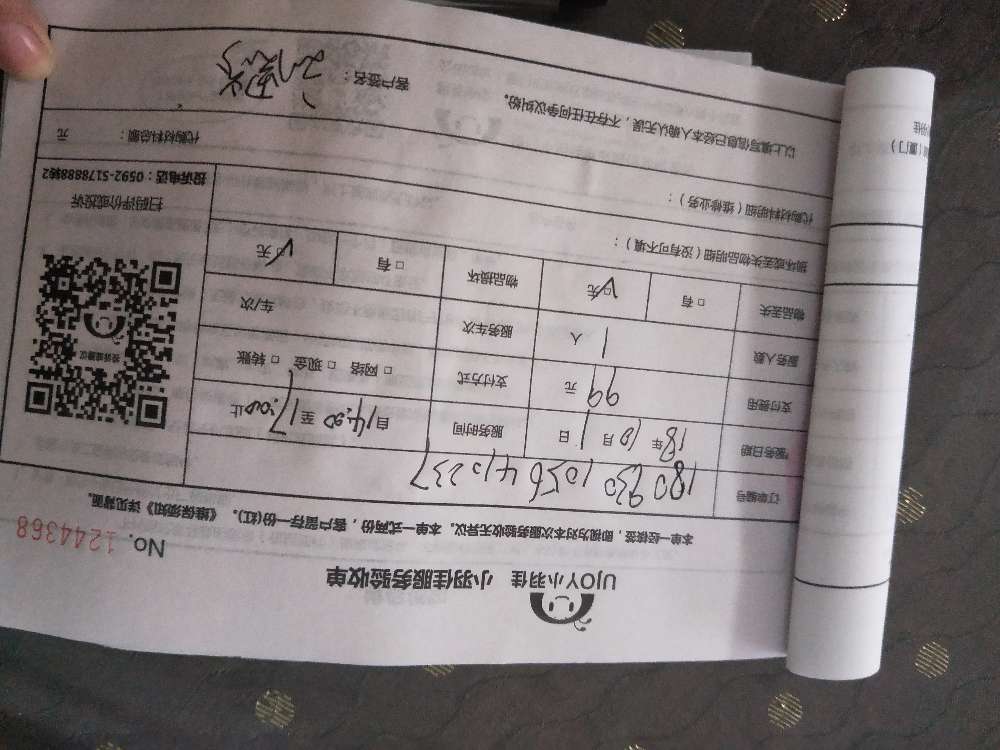 UJOY小羽佳 小羽佳服务验收单
No. 1244368
本单一经核签，即视为对本次服务验收无异议。本单一式两份，客户留存一份(红)。《维保须知》详见背面。
订单编号 1809301056410237
*服务日期 18年 10月 1日 服务时间 自14:00 至 17:00止
支付费用 99 元 支付方式 □ 网络 □ 现金 □ 转账
服务人数 1 人 服务车次 车/次
物品丢失 □ 有 ☑ 无 物品损坏 □ 有 ☑ 无
损坏或丢失物品明细（没有可不填）：
代购材料明细（维修业务）：
代购材料总额： 元
扫码评价或投诉
投诉电话：0592-5178888转2
以上填写信息已经本人确认无误，不存在任何争议纠纷。
客户签名：